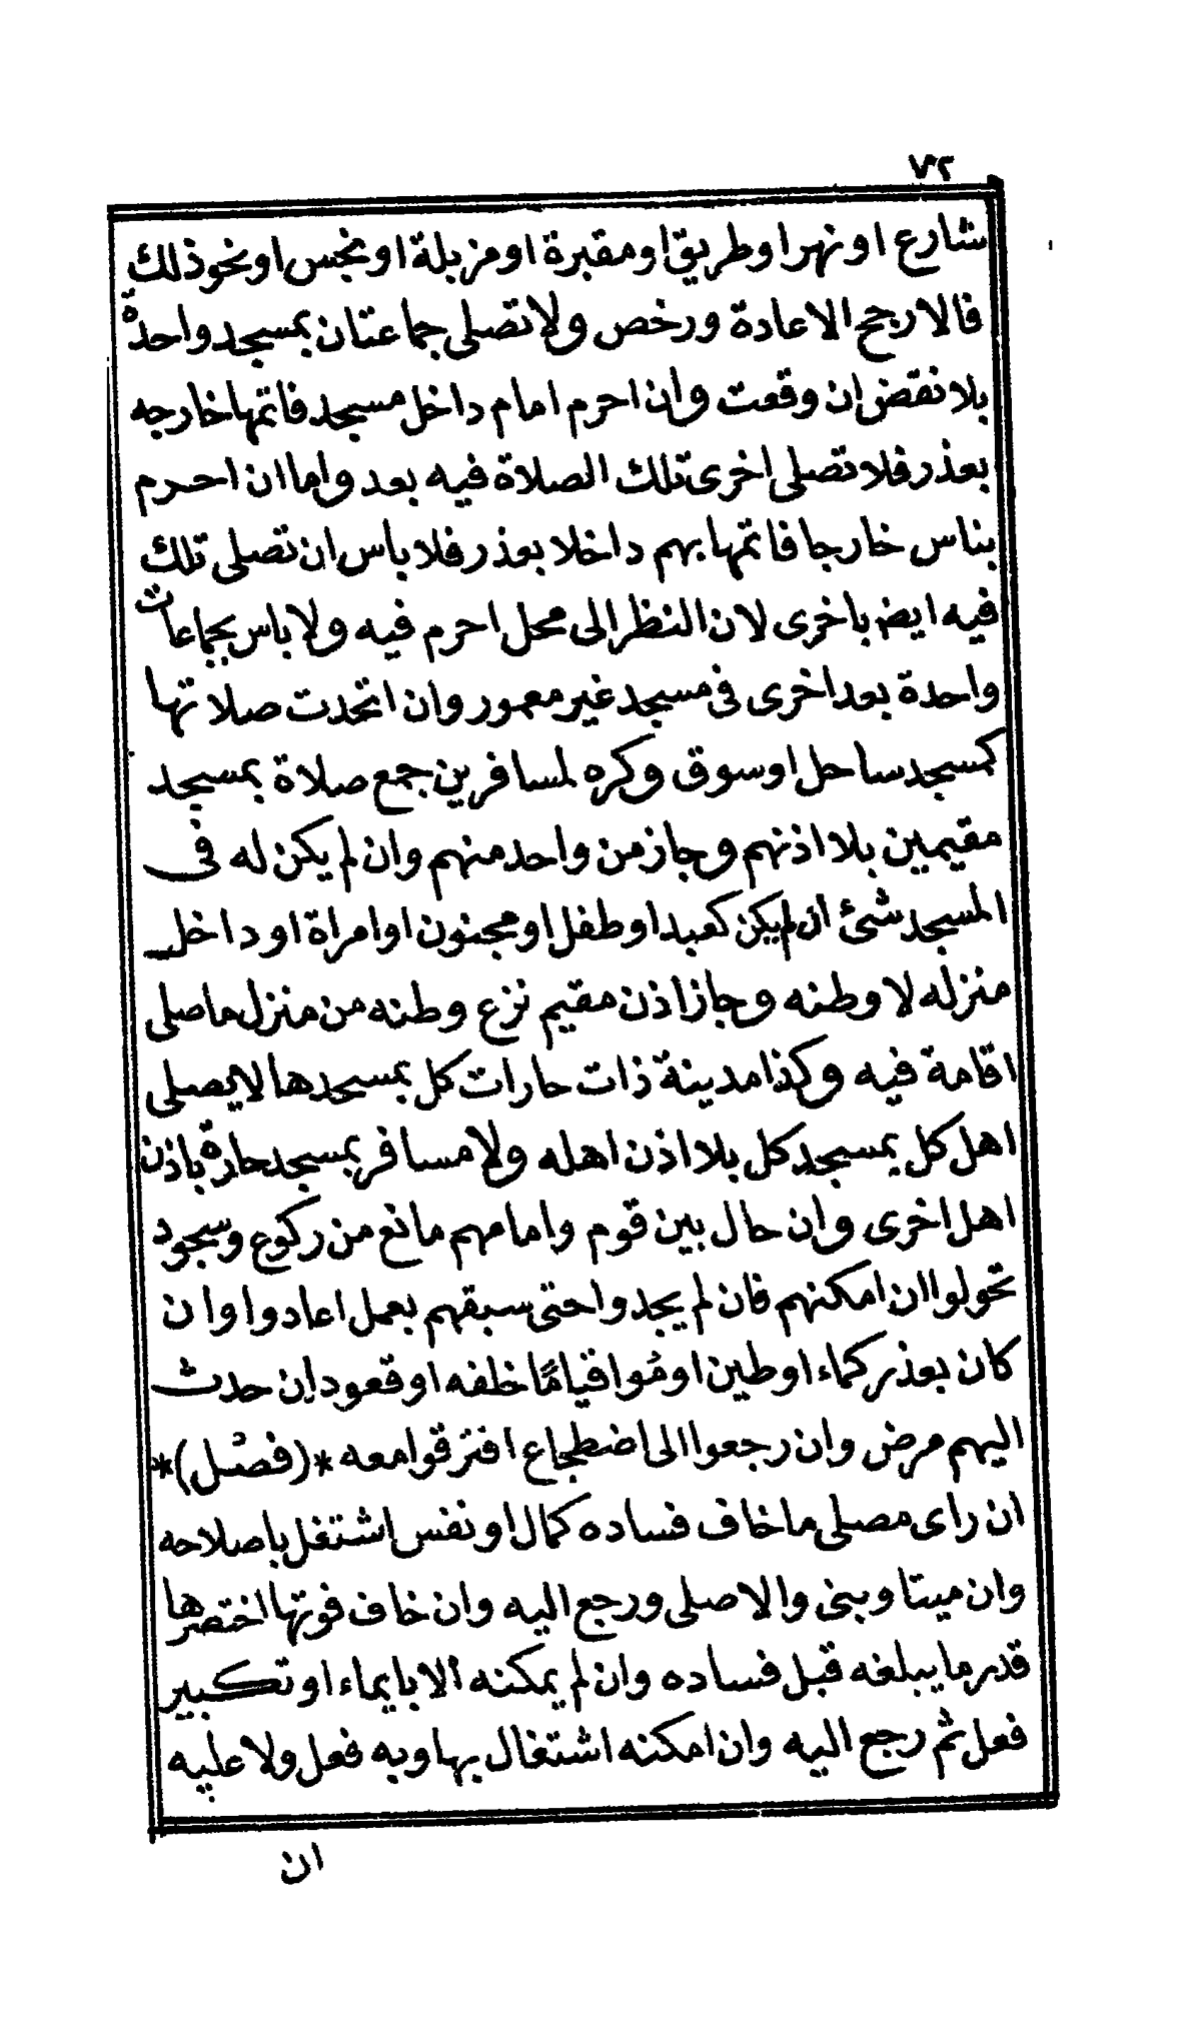 ٧٢
شارع او نهر او طريق او مقبرة او مزبلة او نجس او نحو ذلك
فالارجح الاعادة ورخص ولا تصلى جماعتان بمسجد واحدة
بلا نقض ان وقعت وان احرم امام داخل مسجد فاتمها خارجه
بعذر فلا تصلى اخرى تلك الصلاة فيه بعد واما ان احرم
بناس خارجا فاتمها بهم داخلا بعذر فلا باس ان تصلى تلك
فيه ايض باخرى لان النظر الى محل احرم فيه ولا باس بجماعات
واحدة بعد اخرى فى مسجد غير معمور وان اتحدت صلاتها
كمسجد ساحل او سوق وكره لمسافرين جمع صلاة بمسجد
مقيمين بلا اذنهم وجاز من واحد منهم وان لم يكن له فى
المسجد شئ ان لم يكن كعبد او طفل او مجنون او امراة او داخل
منزله لا وطنه وجاز اذن مقيم نزع وطنه من منزل ما صلى
اقامة فيه وكذا مدينة ذات حارات كل بمسجدها لا يصلى
اهل كل بمسجد كل بلا اذن اهله ولا مسافر بمسجد حارة باذن
اهل اخرى وان حال بين قوم وامامهم مانع من ركوع وسجود
تحولوا ان امكنهم فان لم يجدوا حتى سبقهم بعمل اعادوا وان
كان بعذر كماء او طين اومُوا قيامًا خلفه او قعود إن حدث
اليهم مرض وان رجعوا الى اضطجاع افترقوا معه *(فصل)*
ان راى مصلى ما خاف فساده كمال او نفس اشتغل باصلاحه
وان ميتا وبنى والا صلى ورجع اليه وان خاف فوتها اختصرها
قدر ما يبلغه قبل فساده وان لم يمكنه الا بايماء او تكبير
فعل ثم رجع اليه وان امكنه اشتغال بها وبه فعل ولا عليه
ان